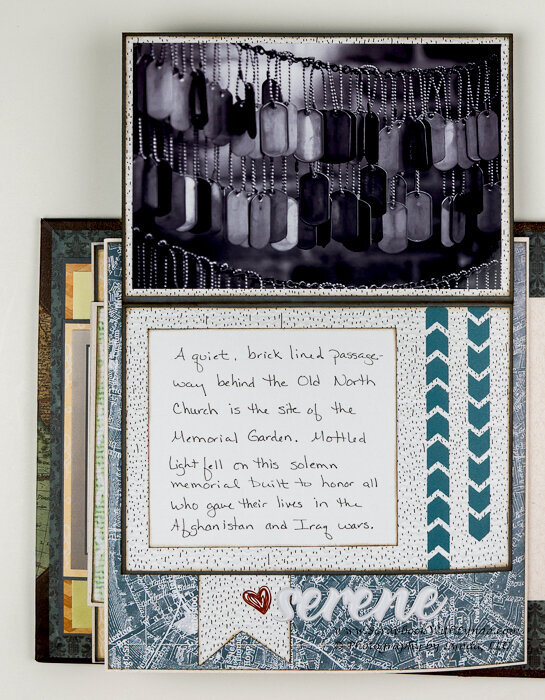 A quiet, brick lined passage-
way behind the Old North
Church is the site of the
Memorial Garden. Mottled
light fell on this solemn
memorial built to honor all
who gave their lives in the
Afghanistan and Iraq wars.
serene
Photography by